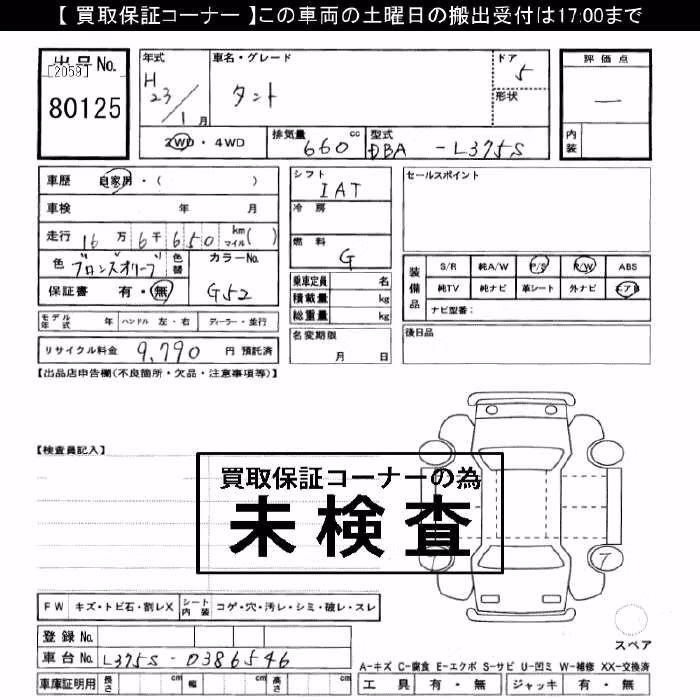 【 買取保証コーナー 】この車両の土曜日の搬出受付は17:00まで
出品No.
[2059]
80125
年式
H
23/1月
車名・グレード
タント
ドア
5
形状
評価点
—
内装
2WD・4WD
排気量
660
cc
型式
DBA -L375S
車歴 自家用・( )
車検 年 月
走行 16万6千650 km マイル( )
色 ブロンズオリーブ
色替
カラーNo.
G52
保証書 有・無
モデル年式 年 ハンドル 左・右 ディーラー・並行
リサイクル料金 9,790 円 預託済
シフト
IAT
冷房
燃料
G
乗車定員 名
積載量 kg
総重量 kg
名変期限
月 日
セールスポイント
装備品
S/R 純A/W P/S P/W ABS
純TV 純ナビ 革シート 外ナビ エアB
ナビ型番:
後日品
【出品店申告欄(不良箇所・欠品・注意事項等)】
【検査員記入】
買取保証コーナーの為
未検査
7
7
スペア
FW キズ・トビ石・割レX
シート内装 コゲ・穴・汚レ・シミ・破レ・スレ
登録No.
車台No. L375S - 0386546
車庫証明用 長さ cm 幅 cm 高さ cm
A-キズ C-腐食 E-エクボ S-サビ U-凹ミ W-補修 XX-交換済
工具 有・無 ジャッキ 有・無